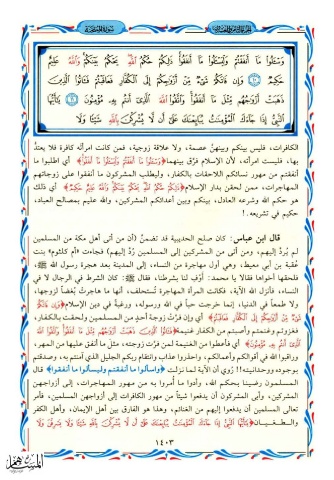 الجزء الثامن والعشرون
سورة الممتحنة
وَسْـَٔلُوا۟ مَآ أَنفَقْتُمْ وَلْيَسْـَٔلُوا۟ مَآ أَنفَقُوا۟ ذَٰلِكُمْ حُكْمُ ٱللَّهِ يَحْكُمُ بَيْنَكُمْ وَٱللَّهُ عَلِيمٌ
حَكِيمٌ ١٠ وَإِن فَاتَكُمْ شَىْءٌ مِّنْ أَزْوَٰجِكُمْ إِلَى ٱلْكُفَّارِ فَعَاقَبْتُمْ فَـَٔاتُوا۟ ٱلَّذِينَ
ذَهَبَتْ أَزْوَٰجُهُم مِّثْلَ مَآ أَنفَقُوا۟ وَٱتَّقُوا۟ ٱللَّهَ ٱلَّذِىٓ أَنتُم بِهِۦ مُؤْمِنُونَ ١١ يَـٰٓأَيُّهَا
ٱلنَّبِىُّ إِذَا جَآءَكَ ٱلْمُؤْمِنَـٰتُ يُبَايِعْنَكَ عَلَىٰٓ أَن لَّا يُشْرِكْنَ بِٱللَّهِ شَيْـًٔا وَلَا
الكافرات، فليس بينكم وبينهنَّ عصمة، ولا علاقة زوجية، فمن كانت امرأته كافرة فلا يعتدَّ
بها، فليست امرأته، لأن الإسلام فرَّق بينهما ﴿وَسْـَٔلُوا۟ مَآ أَنفَقْتُمْ وَلْيَسْـَٔلُوا۟ مَآ أَنفَقُوا۟﴾ أي اطلبوا ما
أنفقتم من مهور نسائكم اللاحقات بالكفار، وليطلب المشركون ما أنفقوا على زوجاتهم
المهاجرات، ممن لحقن بدار الإسلام ﴿ذَٰلِكُمْ حُكْمُ ٱللَّهِ يَحْكُمُ بَيْنَكُمْ وَٱللَّهُ عَلِيمٌ حَكِيمٌ﴾ أي ذلك
هو حكم الله وشرعه العادل، بينكم وبين أعدائكم المشركين، والله عليم بمصالح العباد،
حكيم في تشريعه.!
قال ابن عباس: كان صلح الحديبية قد تضمَّن (أن من أتى أهل مكة من المسلمين
لم يُردَّ إليهم، ومن أتى من المشركين إلى المسلمين رُدَّ إليهم) فجاءت «أم كلثوم» بنت
عُقبة بن أبي معيط، وهي أول مهاجرة من النساء، إلى المدينة بعد هجرة رسول الله ﷺ،
فلحقها أخواها فقالا يا محمد: أوْفِ لنا بشرطنا، فقال ﷺ: كان الشرط في الرجال لا في
النساء، فأنزل الله الآية، فكانت المرأة المهاجرة تُستحلف، أنها ما هاجرت بُغضاً لزوجها،
ولا طمعاً في الدنيا، إنما خرجت حباً في الله ورسوله، ورغبة في دين الإسلام ﴿وَإِن فَاتَكُمْ
شَىْءٌ مِّنْ أَزْوَٰجِكُمْ إِلَى ٱلْكُفَّارِ فَعَاقَبْتُمْ﴾ أي وإن فرَّت زوجة أحد من المسلمين ولحقت بالكفار،
فغزوتم وغنمتم وأصبتم من الكفار غنيمة ﴿فَـَٔاتُوا۟ ٱلَّذِينَ ذَهَبَتْ أَزْوَٰجُهُم مِّثْلَ مَآ أَنفَقُوا۟ وَٱتَّقُوا۟ ٱللَّهَ
ٱلَّذِىٓ أَنتُم بِهِۦ مُؤْمِنُونَ﴾ أي فأعطوا من الغنيمة لمن فرَّت زوجته، مثل ما أنفق عليها من المهر،
وراقبوا الله في أقوالكم وأعمالكم، واحذروا عذاب وانتقام ربكم الجليل الذي آمنتم به، وصدقتم
بوجوده ووحدانيته!! رُوي أن الآية لما نزلت ﴿واسألوا ما أنفقتم وليسألوا ما أنفقوا﴾ قال
المسلمون رضينا بحكم الله، وأدوا ما أمروا به من مهور المهاجرات، إلى أزواجهن
المشركين، وأبى المشركون أن يدفعوا شيئاً من مهور الكافرات إلى أزواجهن المسلمين، فأمر
تعالى المسلمين أن يدفعوا إليهم من الغنائم، وهذا هو الفارق بين أهل الإيمان، وأهل الكفر
والطغيان ﴿يَـٰٓأَيُّهَا ٱلنَّبِىُّ إِذَا جَآءَكَ ٱلْمُؤْمِنَـٰتُ يُبَايِعْنَكَ عَلَىٰٓ أَن لَّا يُشْرِكْنَ بِٱللَّهِ شَيْـًٔا وَلَا
١٤٠٣